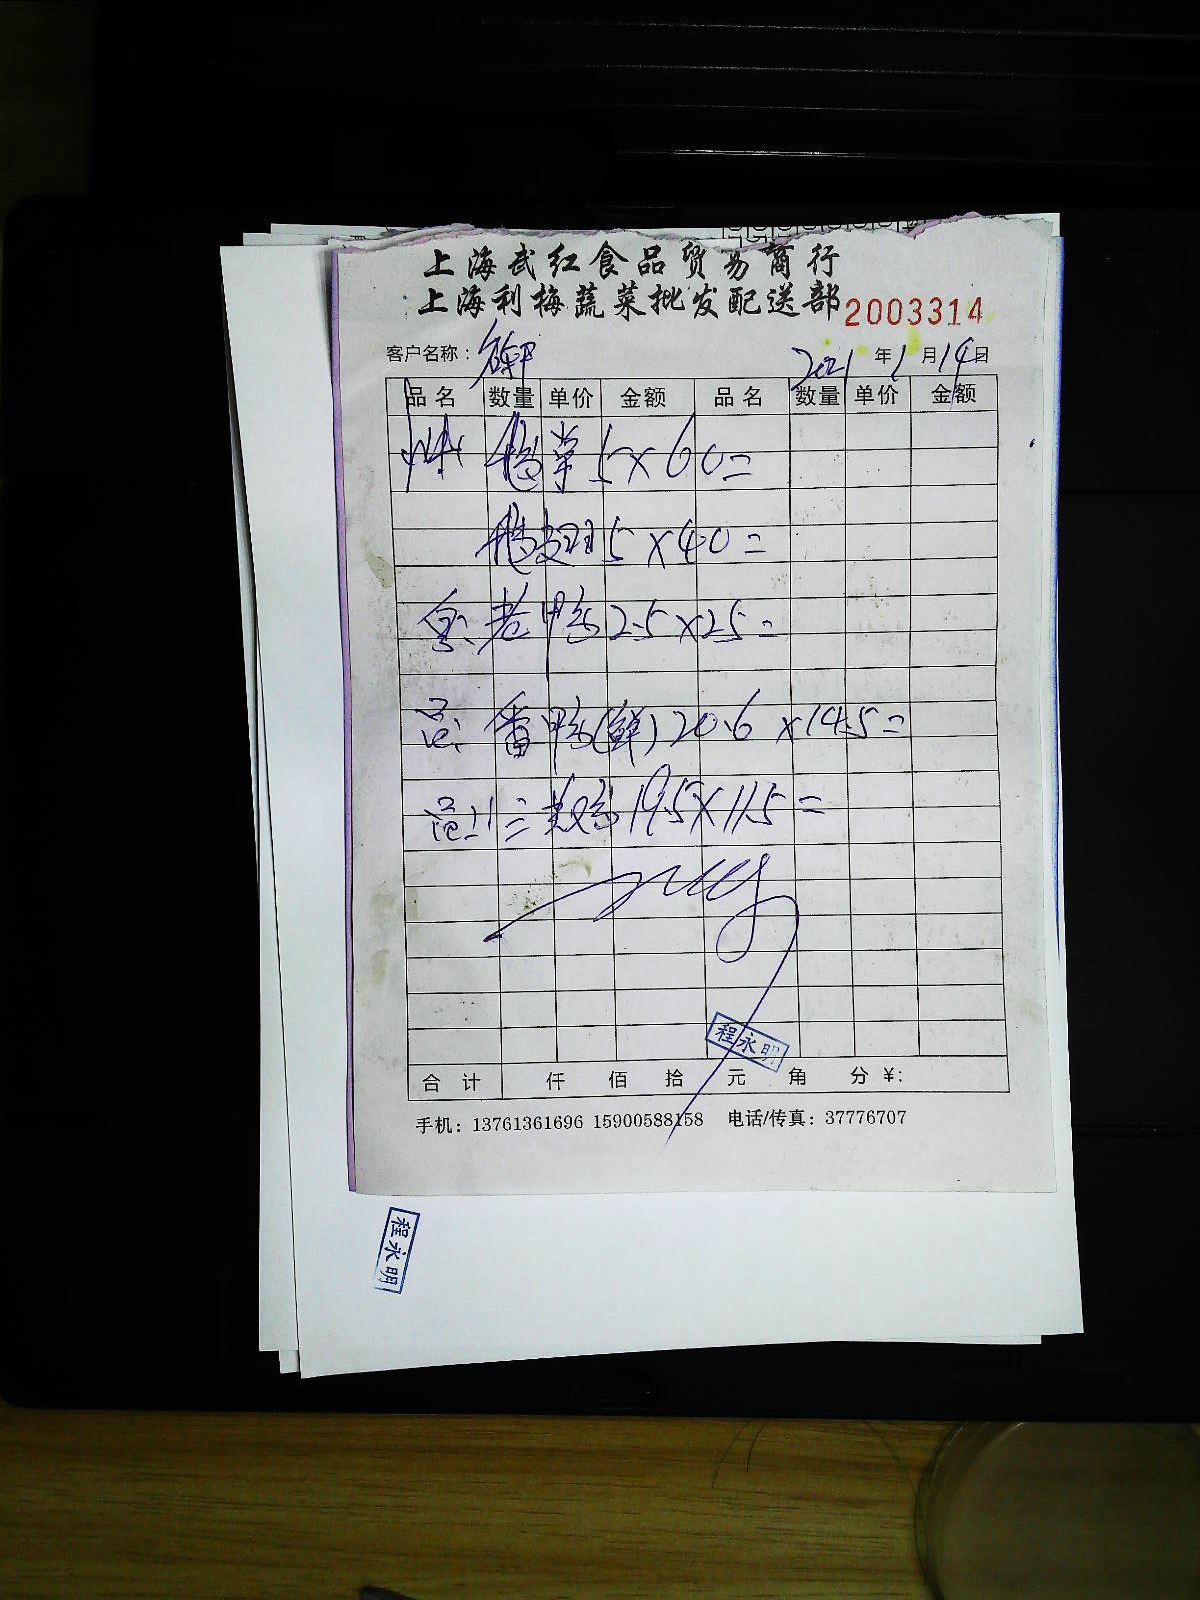 上海武红食品贸易商行
上海利梅蔬菜批发配送部 2003314
客户名称： 2021年1月14日
品名 数量 单价 金额 品名 数量 单价 金额
鸭掌 5×60=
鸭翅 5×40=
老鸭 2.5×25=
番鸭(鲜) 20.6×14.5=
三黄鸡 19.5×11.5=
程永明
合计 仟 佰 拾 元 角 分 ¥:
手机：13761361696 15900588158 电话/传真：37776707
程永明